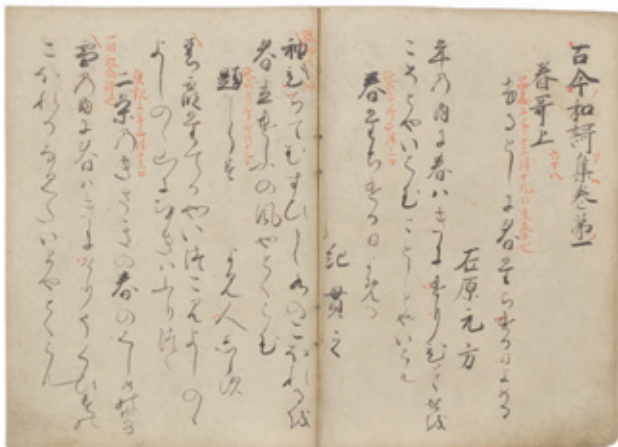 古今和謌集巻第一
春哥上
六十八
ふるとしに春たちける日よめる
在原元方
年乃内に春ハきにけりひとゝせを
こそとやいはむことしとやいはむ
春たちける日よめる
紀貫之
袖ひちてむすひし水のこほれるを
春立けふの風やとくらむ
題しらす
よみ人しらす
春霞たてるやいつこみよしのゝ
よしのゝ山に雪ハふりつゝ
二条乃きさきの春のはしめの御うた
雪乃内に春ハきにけりうくひすの
こほれるなみたいまやとくらん